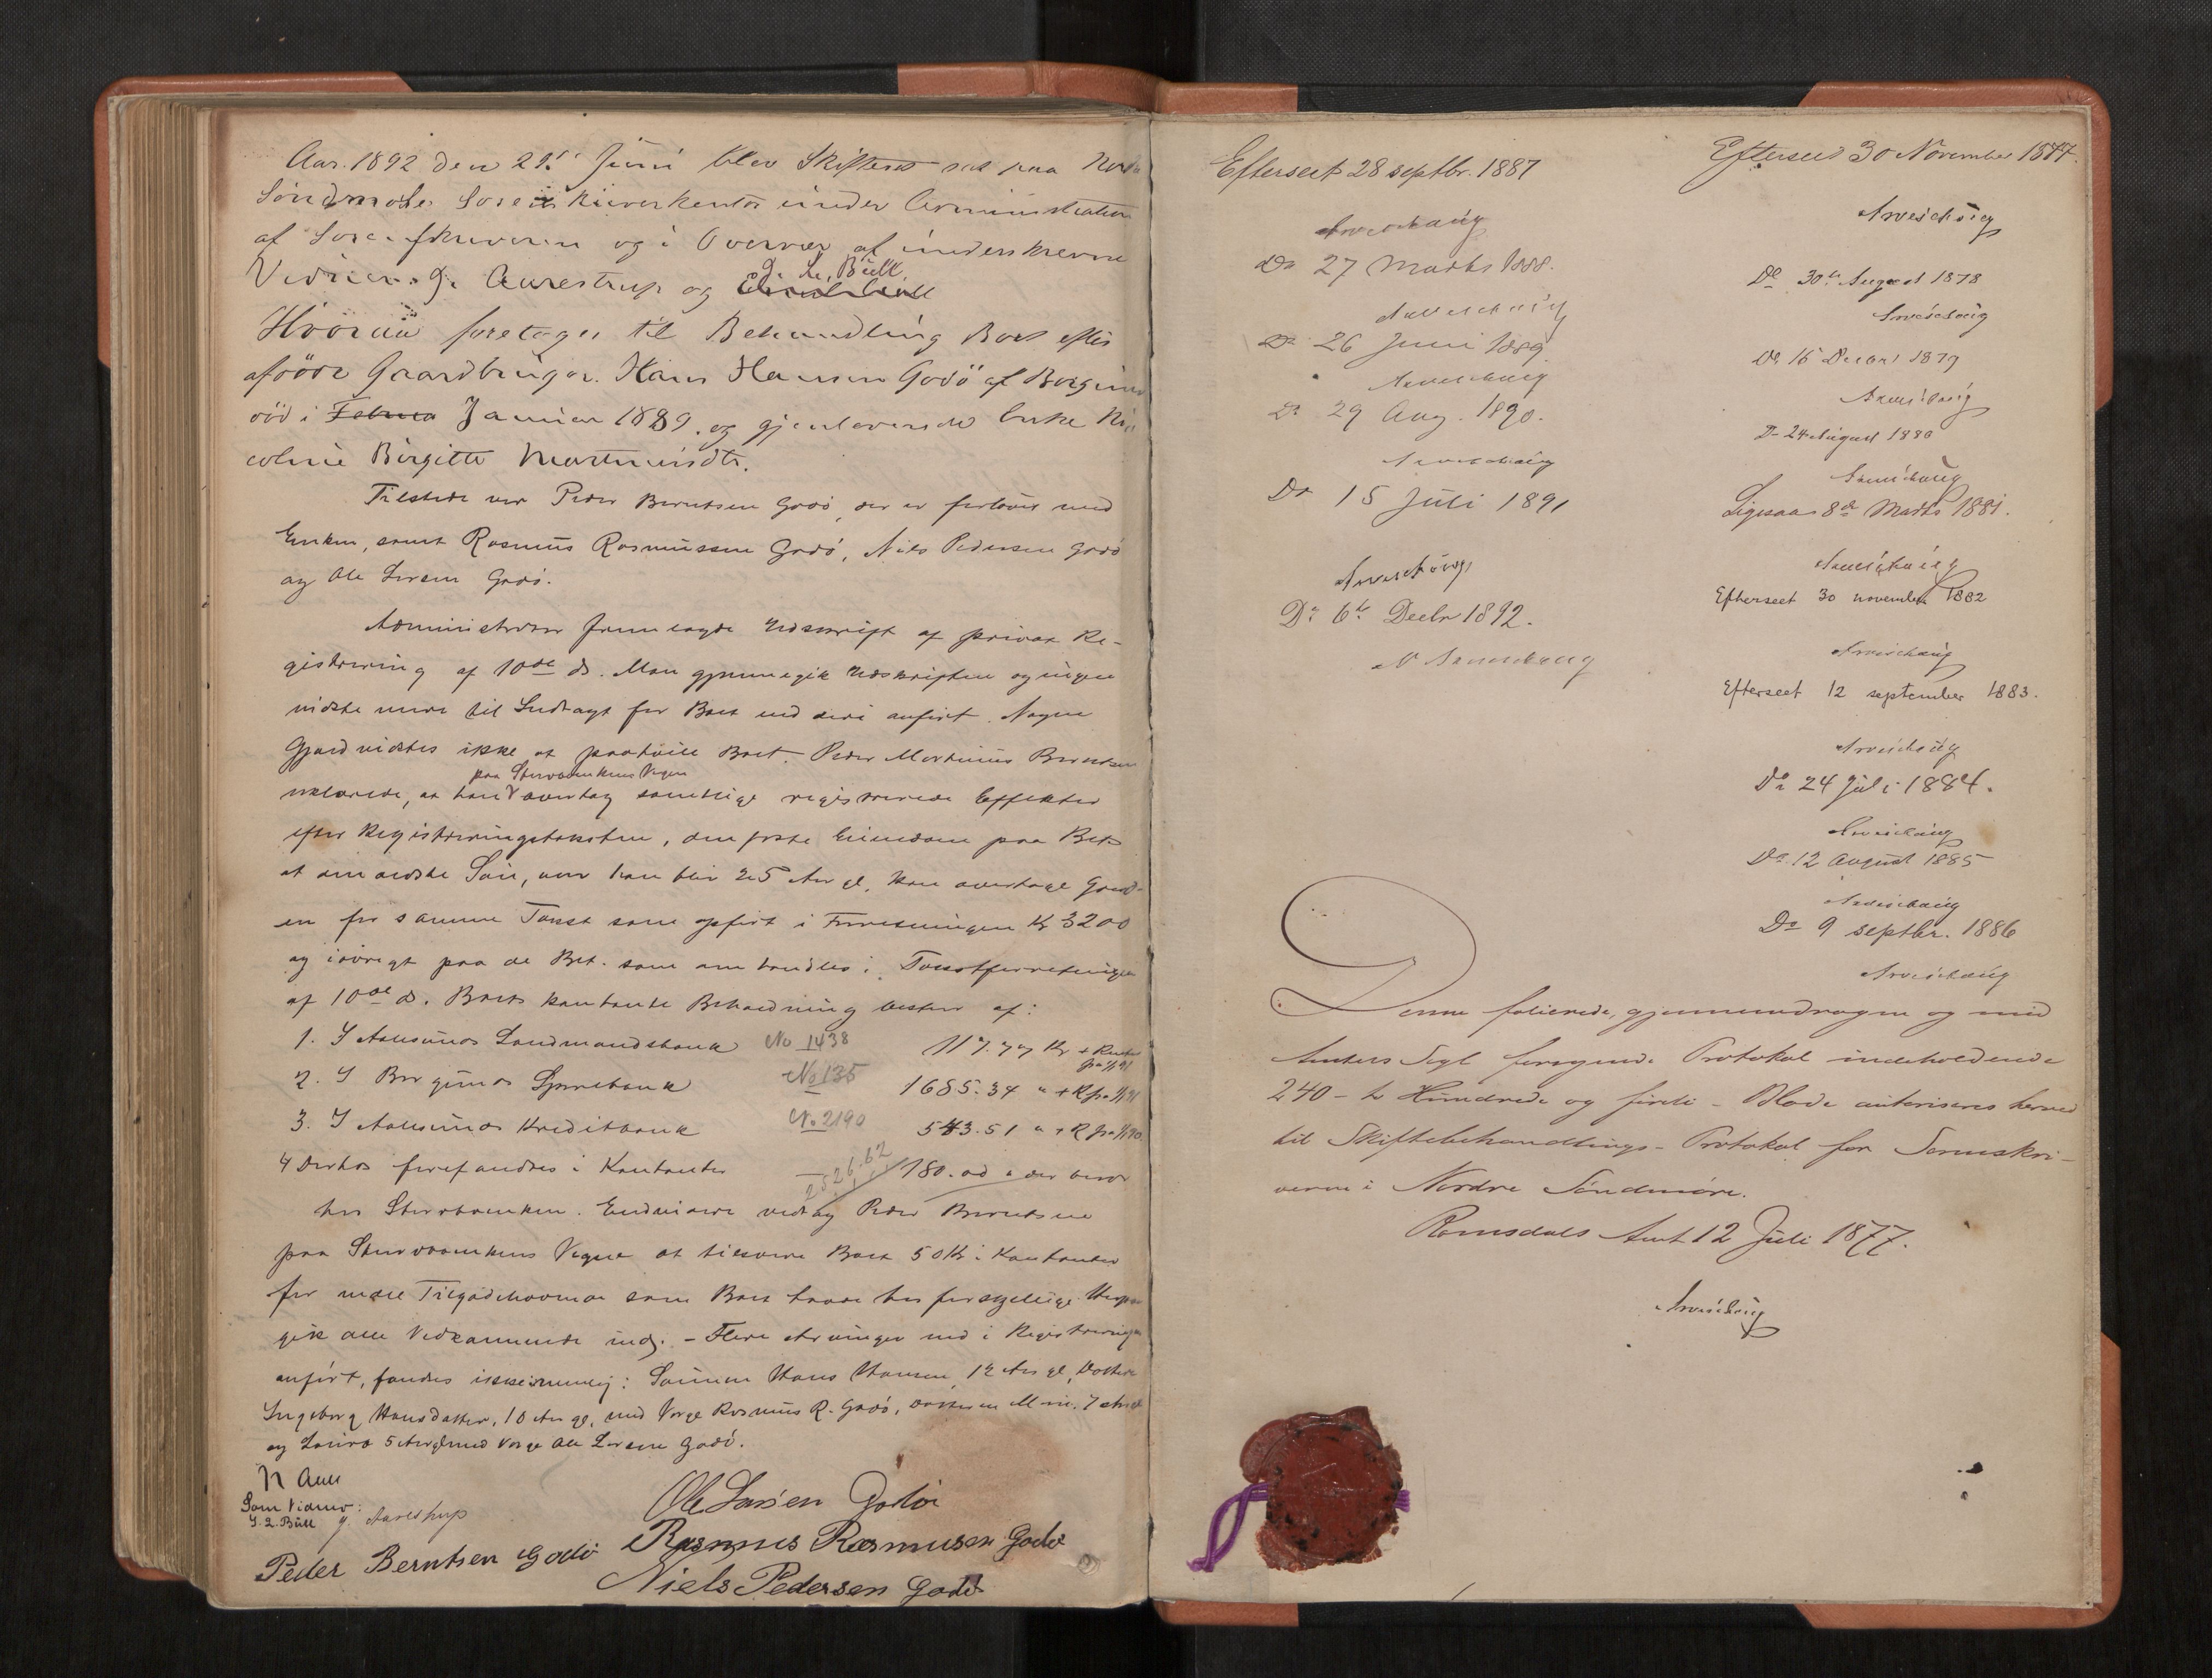 Aar. 1892 den 21de Juni blev Skifteret sat paa Nordre
Söndmøre Sorenskriverkontor under Administration
af Sorenskriveren og i Overvær af underskrevne
Vidner J. Aarestrup og
Hvorda foretoges til Behandling Boet efter
afdöde Gaardbruger Hans Hansen Godö af Borgund
död i Januar 1889, og gjenlevende Enke Ni-
coline Birgitte Martinusdtr.
Tilstede var Peder Berntsen Godö, der er forlovet med
Enken, samt Rasmus Rasmussen Godö, Niels Pedersen Godö
og Ole Larsen Godö.
Administrator fremlagde Udskrift af privat Re-
gistrering af 10de ds. Man gjennemgik Udskriften og ingen
vidste mere til Indtægt for Boet end deri anført. Nogen
Gjæld vidstes ikke at paahvile Boet. Peder Martinus Berntsen
paa Stervboenkens Vegne
erklærede, at han overtog samtlige registrerede Effekter
efter Registreringstaksten, den faste Eiendom paa Bet.
at den ældste Sön, naar han blir 25 Aar gl. kan overtage Gaard-
en for samme Taxst som opført i Forretningen Kr 3200
og iøvrigt paa de Bet. som omhandles i Taxstforretningen
af 10de ds. Boets kontante Beholdning bestaar af:
1. I Aalesunds Landmandsbank No 1438 117.77 Kr + Renter
2. I Borgunds Sparebank No 135 1685.34 " + R fra 1/1 91
3. I Aalesunds Kreditbank No. 2190 543.51 " + R fra 1/1 90.
4 Derhos forefandtes i Kontanter 180.00 " der beror
2526.62
hos Stervboenken. Endvidere vedtog Peder Berntsen
paa Stervboenkens Vegne at tilsvare Boet 50 Kr i Kontanter
for mulige Tilgodehavende som Boet havde hos forskjellige. Herpaa
gik alle Vedkommende ind. - Flere Arvinger end i Registreringen
anført, fandtes ikke nemlig: Sönnen Hans Hansen 12 Aar gl, Datter
Ingeborg Hansdatter, 10 Aar gl, med Verge Rasmus R. Godö, 7 Aar
og Laura 5 Aar gl med Verge Ole Larsen Godö.
Som Vidner:
J. Aarestrup
Ole Larsen Godöe
Rasmus Rasmusen Godö
Peder Berntsen Godö
Niels Pedersen Godö
Efterseet 28 septbr. 1887
Do 27 Marts 1888.
Do 26 Juni 1889.
Do 29 Aug. 1890.
Do 15 Juli 1891
Do 6te Decbr 1892.
Efterseet 30 November 1877.
Do 30te August 1878
Do 16 Decbr 1879
Do 24 August 1880
Ligesaa 8de Marts 1881.
Efterseet 30 november 1882
Efterseet 12 september 1883.
Do 24 Juli 1884.
Do 12 August 1885
Do 9 septbr. 1886
Denne folierede, gjennemdragne og med
Amtets Segl forsynede Protokol indeholdende
240 - to Hundrede og firti - Blade autoriseres herved
til Skiftebehandlings-Protokol for Sorenskri-
veren i Nordre Söndmöre.
Romsdals Amt 12 Juli 1877.